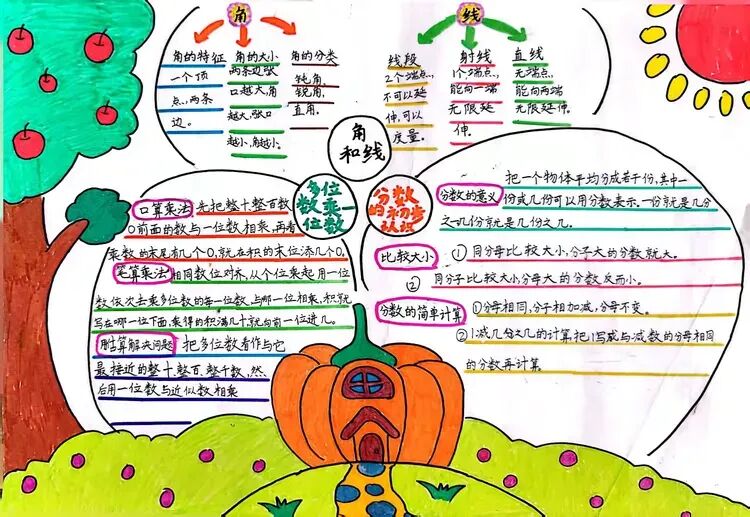 角
角的特征
一个顶
点,两条
边。
角的大小
两条边张
口越大,角
越大,张口
越小,角越小。
角的分类
钝角,
锐角,
直角。
线
线段
2个端点,
不可以延
伸,可以
度量。
射线
1个端点,
能向一端
无限延
伸。
直线
无端点,
能向两端
无限延伸。
角
和线
多位
数乘一
位数
口算乘法 先把整十、整百数
0前面的数与一位数相乘,再看
乘数的末尾有几个0,就在积的末位添几个0。
笔算乘法 相同数位对齐,从个位乘起,用一位
数依次去乘多位数的每一位数,与哪一位相乘,积就
写在哪一位下面,乘得的积满几十,就向前一位进几。
估算解决问题 把多位数看作与它
最接近的整十、整百、整千数,然
后用一位数与近似数相乘
分数
的初步
认识
分数的意义 把一个物体平均分成若干份,其中一
份或几份可以用分数表示.一份就是几分
之一,几份就是几分之几。
比较大小 ①同分母比较大小,分子大的分数就大。
②同分子比较大小,分母大的分数反而小。
分数的简单计算 ①分母相同,分子相加减,分母不变。
②1减几分之几的计算,把1写成与减数的分母相同
的分数再计算